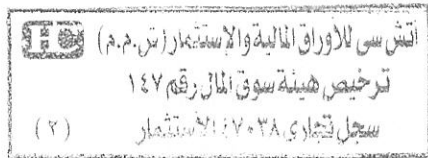 HC
اتش سى للأوراق المالية والإستثمار (ش.م.م)
ترخيص هيئة سوق المال رقم ١٤٧
سجل تجارى ٤٧٠٣٨ الاستثمار
(٢)